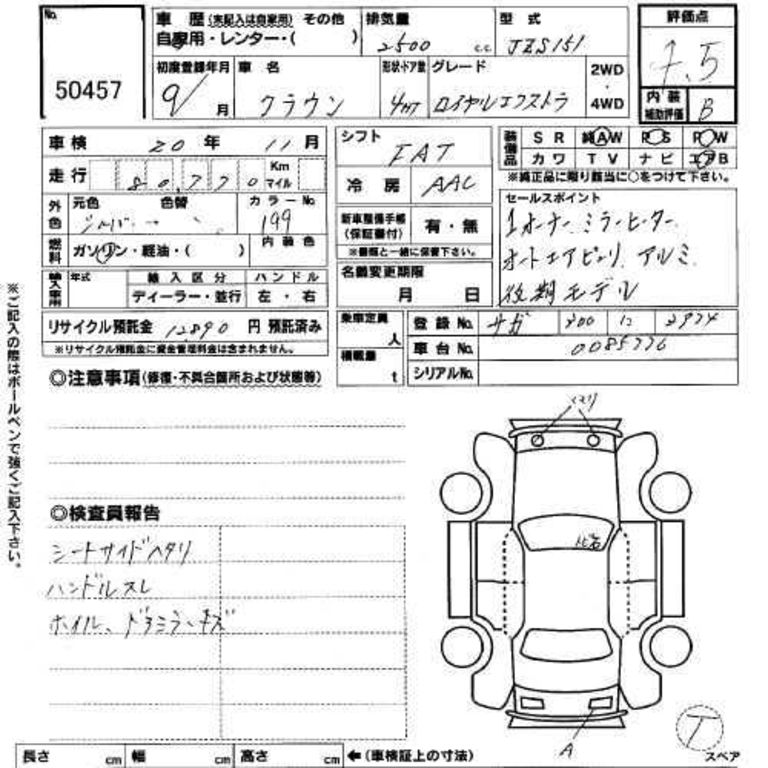 No. 50457
車 歴 (未記入は自家用) その他
自家用・レンター・( )
排気量 2500 c.c.
型 式 JZS151
評価点
初度登録年月 9/ 月
車 名 クラウン
形状・ドア数 4HT
グレード ロイヤルエクストラ
2WD
・
4WD
内装補助評価 B
車検 20 年 11 月
走行 80,770 Km マイル
外色 元色 シルバー 色替 カラーNo. 199
燃料 ガソリン・軽油・( ) 内装色
輸入車用 年式 輸入区分 ハンドル
ディーラー・並行 左・右
リサイクル預託金 12890 円 預託済み
※リサイクル預託金に資金管理料金は含まれません。
シフト FAT
冷房 AAC
新車整備手帳(保証書付) 有・無
※書類と一緒に保管下さい。
名義変更期限
月 日
乗車定員 人
積載量 t
装備品 SR 純AW PS PW
カワ TV ナビ エアB
※純正品に限り該当に○をつけて下さい。
セールスポイント
1オーナー ミラーヒーター
オートエアピュリ アルミ
後期モデル
登録No. サガ 300 ヒ 3974
車台No. 0085776
シリアルNo.
◎注意事項(修復・不具合箇所および状態等)
◎検査員報告
シートサイドヘタリ
ハンドルスレ
ホイル、ドアミラーキズ
クモリ
飛石
A
T
スペア
※ご記入の際はボールペンで強くご記入下さい。
長さ cm 幅 cm 高さ cm ←(車検証上の寸法)